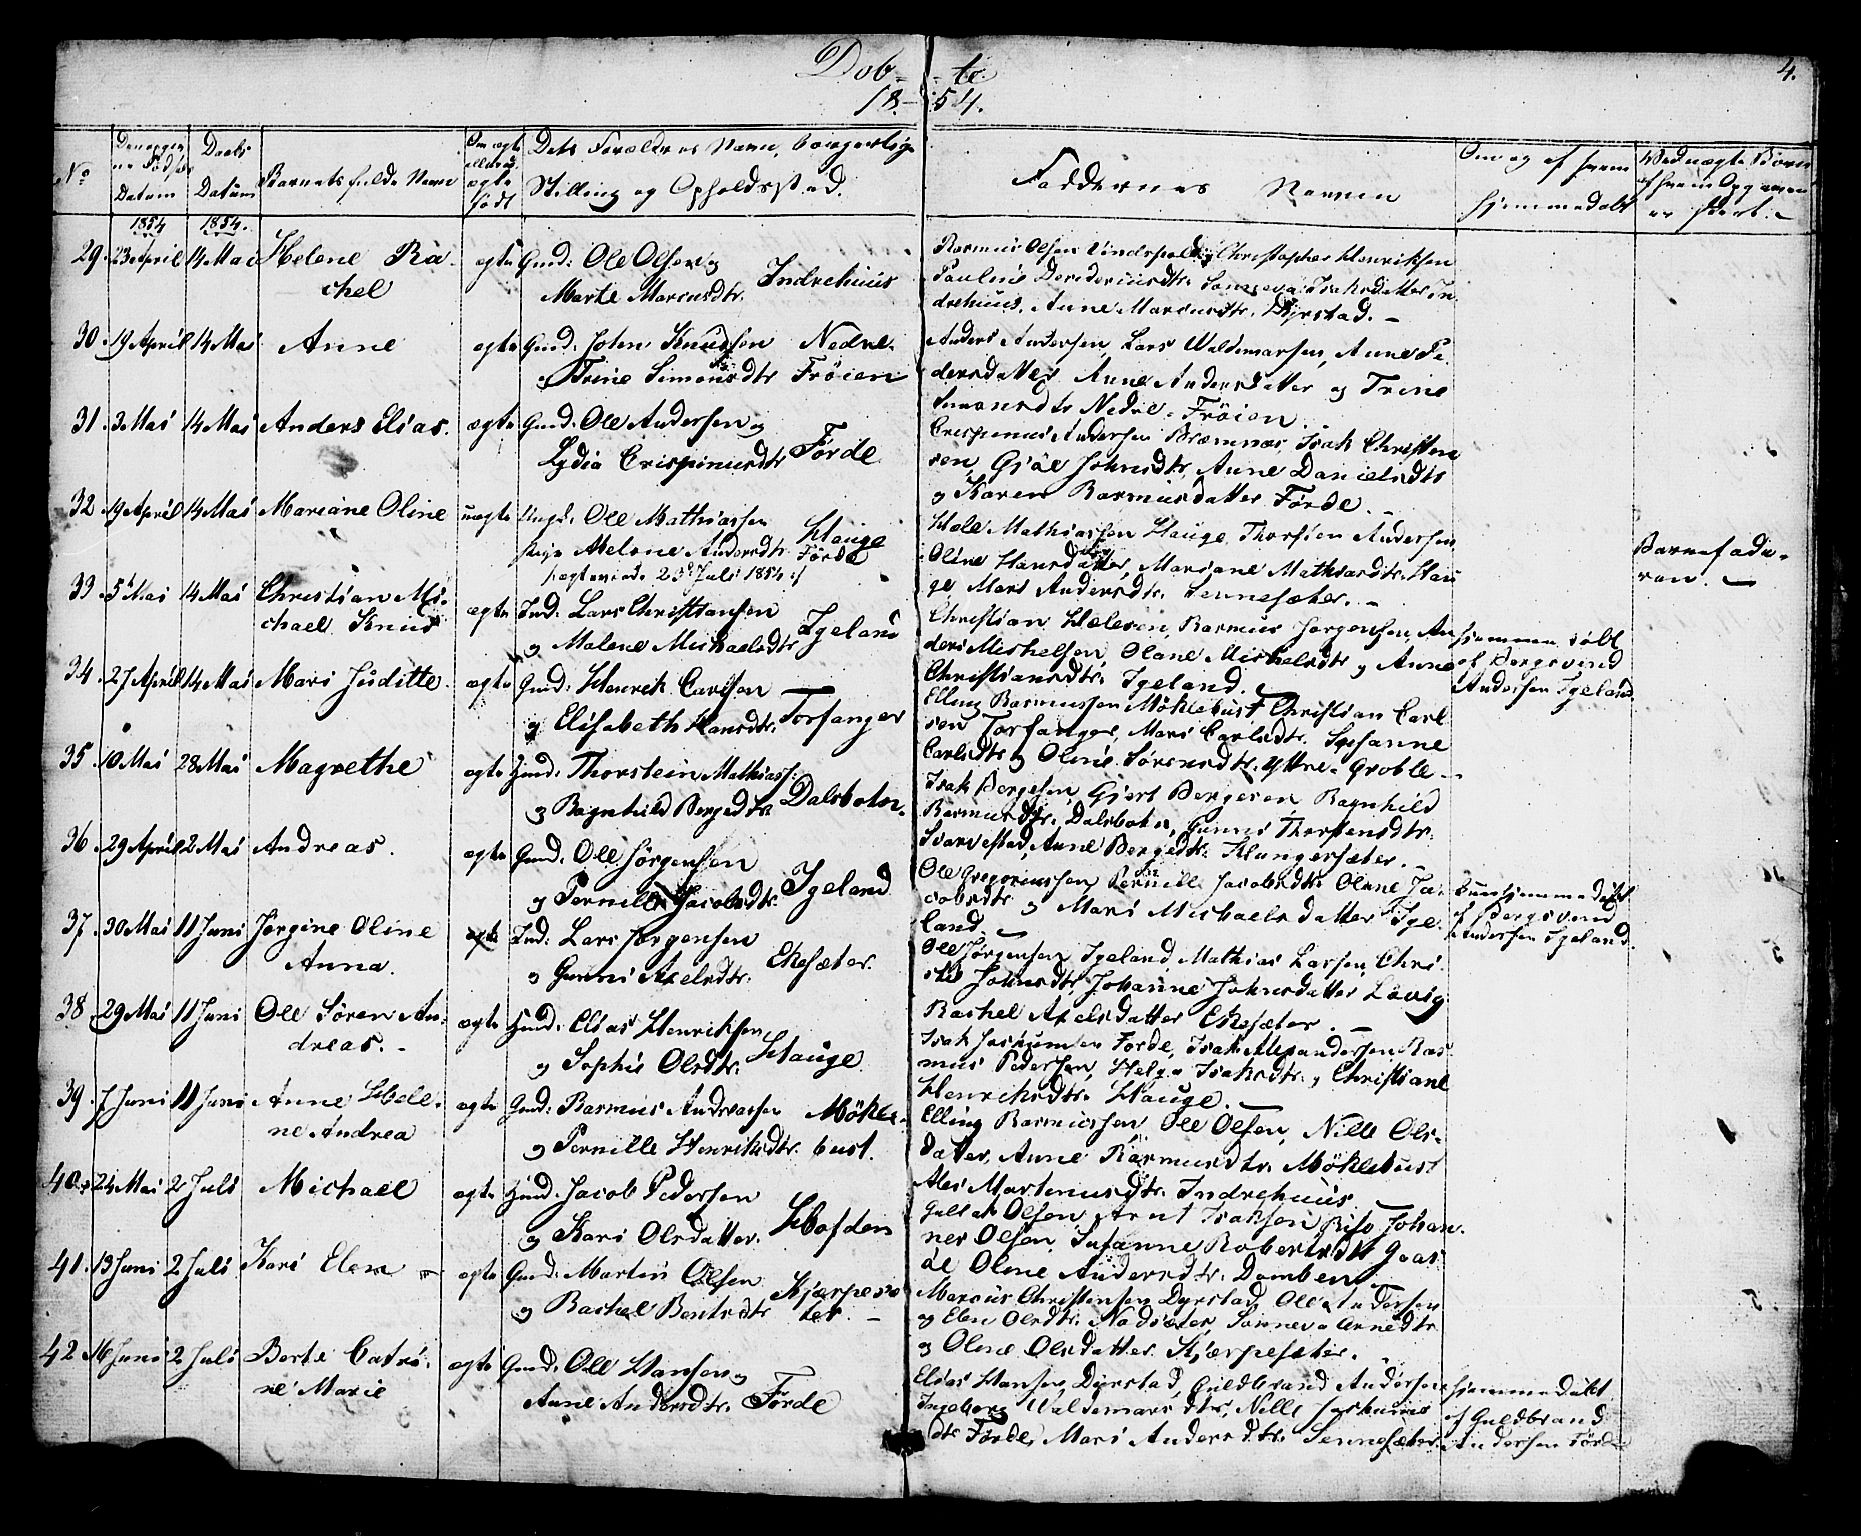 Døb- -te. 4.
18- 54.
No
Datum
Daabs Datum
Barnets fulde Navn
Om ægte eller uægte født
Dets Forældres Navn, borgerlige
Stilling og Opholdssted.
Faddernes Navnen
Om og af hvem
hjemmedøbt
1854 1854.
29. 23 April 14 Mai Helene Ra-
chel
ægte Gmd: Ole Olsen og
Marte Marcusdtr. Indrehuus
Rasmus Olsen Christopher Henriksen
Pauline Isaksdatter In
drehuus, Anne Marcusdtr. Dyrstad. -
30. 19 April 14 Mai Anne
ægte Gmd: John Knudsen Nedre
og Trine Simonsdtr Frøien
Anders Andersen, Lars Waldemarsen, Anne Pe
dersdatter, Anne Andersdatter og Trine
Simonsdtr Nedre-Frøien.
31. 3 Mai 14 Mai Anders Elias.
ægte Gmd: Ole Andersen og
Lydia Crispinusdtr Førde
Crispinus Andersen Bremnæs, Isak Christen
sen, Gjøe Johnsdtr, Anne Danielsdtr
og Karen Rasmusdatter Førde. -
32. 19 April 14 Mai Mariane Oline
uægte Ungk: Ole Mathiassen Hauge
Pige Malene Andersdtr. Førde
Juli 1854
Mathiassen Hauge, Andersen
Oline Hansdatter, Mariane Mathiasdtr. Hau
ge Mari Andersdtr. Sennesæter. -
Barnefade-
ren. -
33. 5 Mai 14 Mai Christian Mi-
chael Knud
ægte Ind: Lars Christiansen
og Malene Michaelsdtr Igeland
Christian Rasmus Jørgensen, An
ders Mickelsen, Olane Mickelsdtr og Anne
Christiansdtr. Igeland.
Hjemme døbt
af Bergsvend
Andersen Igeland
34. 27 April 14 Mai Mari Juditte.
ægte Gmd: Henrik Carlsen
og Elisabeth Hansdtr. Torfanger
Elling Rasmussen Møklebust Christian Carl
sen Torfanger, Mari Carlsdtr. Susanne
Carlsdtr og Oline Sørensdtr. Yttre-Grøble -
35. 10 Mai 28 Mai Magrethe
ægte Gmd: Thorstein Mathiass:
og Ragnhild Bergedtr. Dalsbotn.
Isak Bergesen, Gjert Bergesen Ragnhild
Rasmusdtr. Dalsbotn, Gunni Thorstensdtr.
Anne Bergedtr. Klungersæter. -
36. 29 April 2 Mai Andreas.
ægte Gmd: Ole Jørgensen
og Pernille Jacobsdtr. Igeland
Ole Gregoriussen, Pernille Jacobsdtr. Olene Ja-
cobsdtr og Mari Michaelsdatter Ige-
land. -
hjemmedøbt
af Bergsvend
Andersen Igeland.
37. 30 Mai 11 Juni Jørgine Oline
Anna.
ægte Ind: Lars Jørgensen
og Gunni Axelsdtr. Ekesæter.
Ole Jørgensen Igeland, Mathias Larsen, Chri-
sti Johnsdtr, Johanne Johnsdatter Løvig
Rachel Axelsdatter Ekesæter. -
38. 29 Mai 11 Juni Ole Søren An-
dreas. -
ægte Gmd: Elias Henriksen
og Sophie Olsdtr. Hauge.
Isak Førde, Isak Alexandersen, Ras
mus Pedersen, Helga Isaksdtr. og Christiane
Henriksdtr. Hauge.
39. 7 Juni 11 Juni Anne Hele-
ne Andrea
ægte Gmd: Rasmus Andreassen Møkle-
og Pernille Henriksdtr. bust.
Elling Rasmussen, Ole Olsen, Nille Ols-
datter, Anne Rasmusdtr. Møklebust
Martinusdtr. Indrehuus
40. 24 Mai 2 Juli Michael
ægte Gmd: Jacob Pedersen
og Kari Olsdatter. Hofden
Olsen, Arnt Isaksen Risø Johan-
nes Olsen, Susanne Robertsdtr Gaas
øe Oline Andersdtr. Domben
41. 13 Juni 2 Juli Kari Elen -
ægte Gmd: Martin Olsen Kjærpesæ
og Rachel Bentsdtr ter. -
Marcus Christensen Dyrstad, Ole Andersen
og Elen Olsdtr. Nødsæter, Sanneva Arnedtr
og Oline Olsdatter Kjærpesæter.
42 16 Juni 2 Juli Berte Catri-
ne Marie
ægte Gmd: Ole Hansen og
Anne Andersdtr. Førde
Elias Hansen, Dyrstad, Guldbrand Andersen
Ingeborg Waldemarsdtr, Nille
dtr Førde, Mari Andersdtr. Sennesæter.
hjemmedøbt
af Guldbrand
Andersen Førde